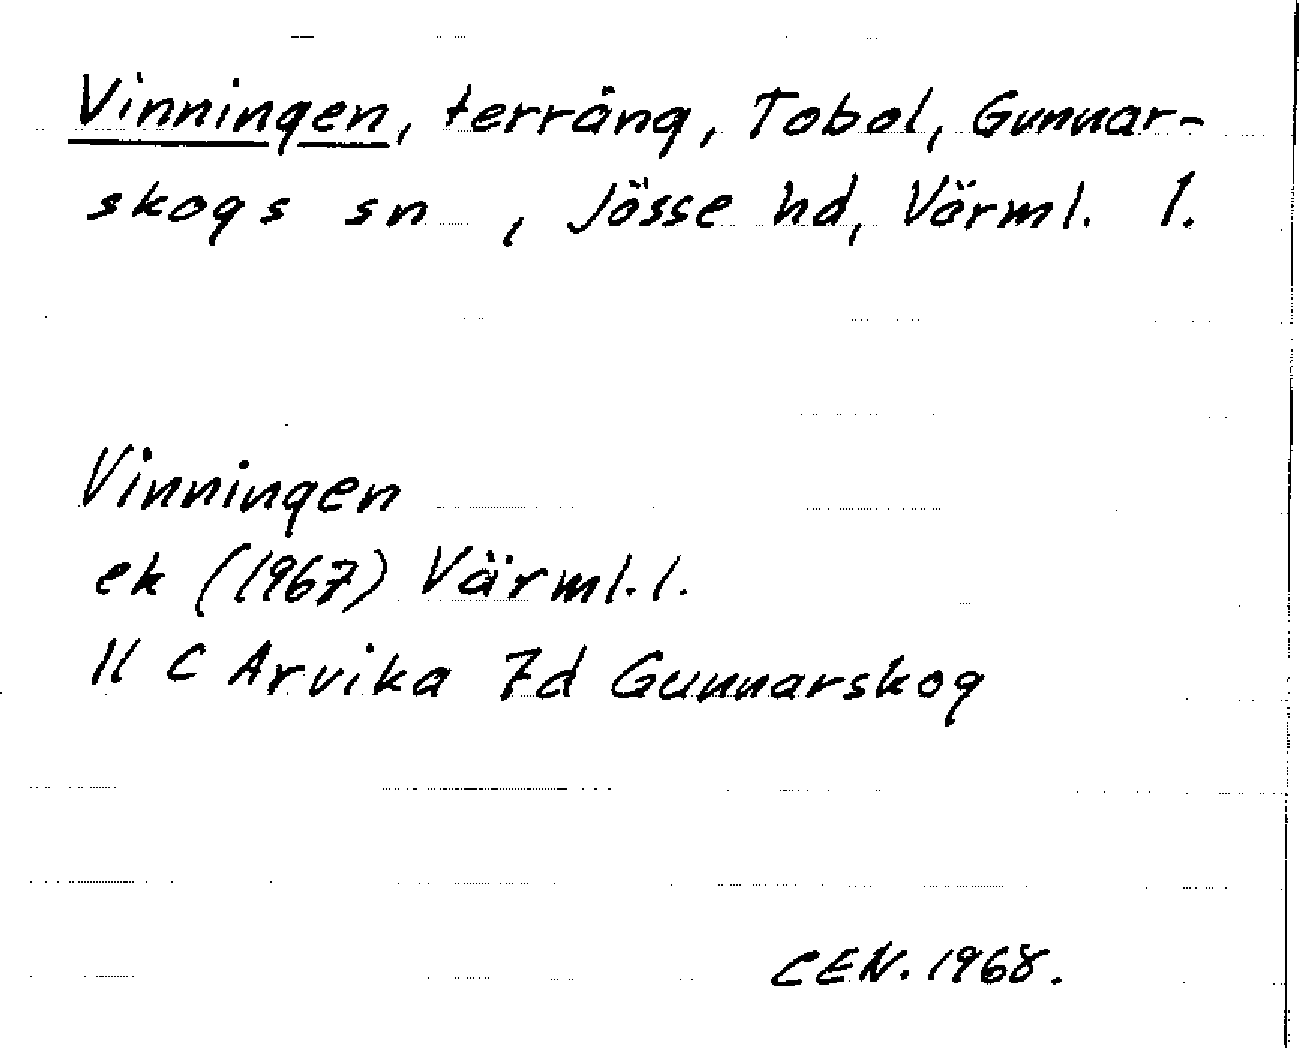 Vinningen, terräng, Tobol, Gunnar-
skogs sn , Jösse hd, Värml. l.
Vinningen
ek (1967) Värml. l.
11 C Arvika 7d Gunnarskog
CEN. 1968.